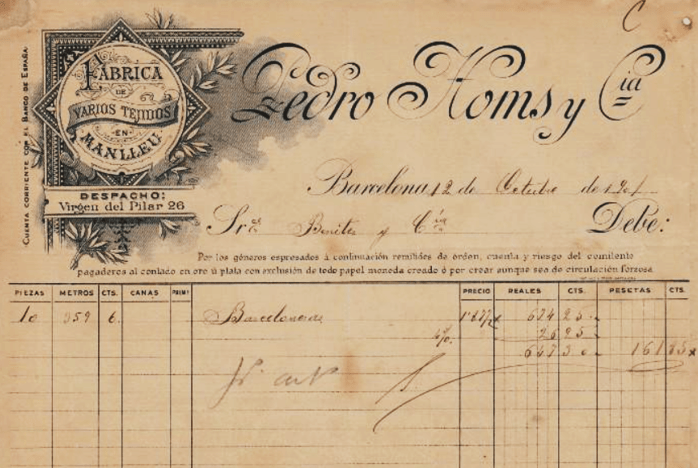 C
CUENTA CORRIENTE CON EL BANCO DE ESPAÑA
FÁBRICA
DE
VARIOS TEJIDOS
EN
MANLLEU
DESPACHO:
Virgen del Pilar 26
Pedro Homs y Cia
Barcelona 12 de Octubre de 1901
Sres Benites y Cia Debe:
Por los géneros espresados à continuación remitidos de orden, cuenta y riesgo del comitente
pagaderos al contado en oro ú plata con exclusion de todo papel moneda creado ó por crear aunque sea de circulación forzosa.
PIEZAS METROS CTS. CANAS PALMS PRECIO REALES CTS. PESETAS CTS.
10 359 6 Barcelonesa
4%